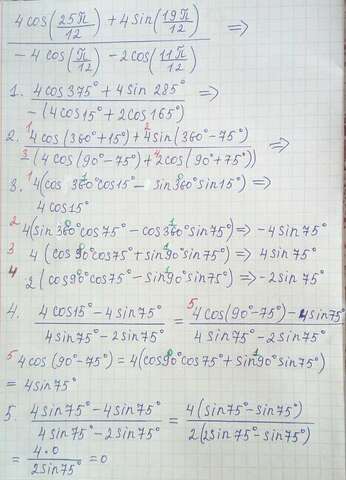 4cos(25π/12) + 4sin(19π/12) ⇒
-4cos(π/12) - 2cos(11π/12)
1. 4cos375° + 4sin 285° ⇒
-(4cos15° + 2cos165°)
2. 1 4cos(360°+15°) + 2 4sin(360°-75°) ⇒
3 (4cos(90°-75°) + 4 2cos(90°+75°))
3. 1 4(cos 360° 1 cos15° - sin360° 0 sin15°) ⇒
4cos15°
2 4(sin360° 0 cos75° - cos360° 1 sin75°) ⇒ -4sin75°
3 4(cos90° 0 cos75° + sin90° 1 sin75°) ⇒ 4sin75°
4 2(cos90° 0 cos75° - sin90° 1 sin75°) ⇒ -2sin75°
4. (4cos15° - 4sin75°)/(4sin75° - 2sin75°) = (5 4cos(90°-75°) - 4sin75°)/(4sin75° - 2sin75°)
5 4cos(90°-75°) = 4(cos90° 0 cos75° + sin90° 1 sin75°)
= 4sin75°
5. (4sin75° - 4sin75°)/(4sin75° - 2sin75°) = 4(sin75° - sin75°)/2(2sin75° - sin75°)
= 4·0/2sin75° = 0